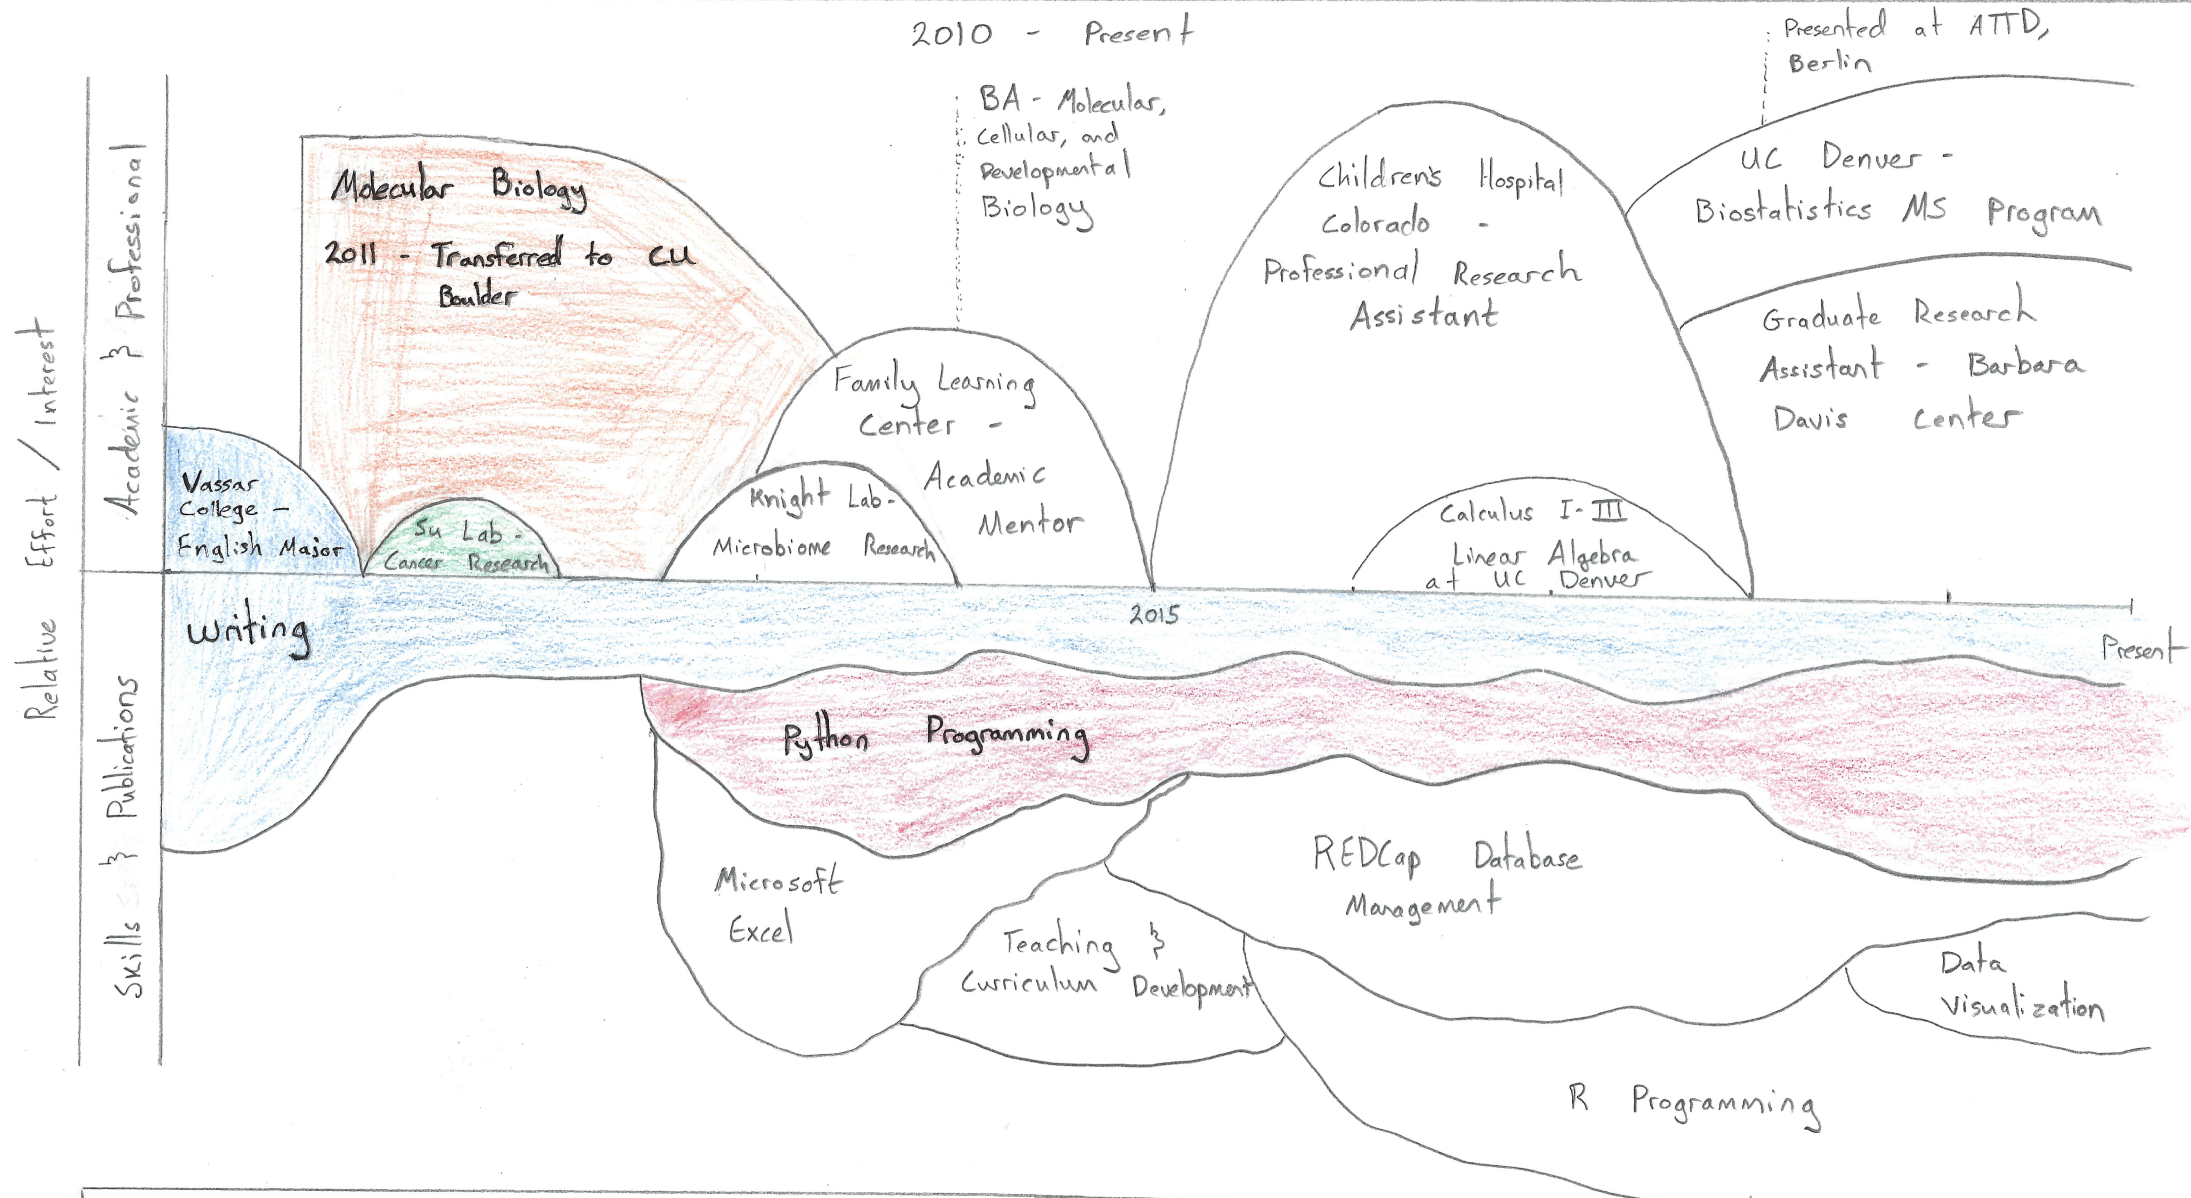 2010 - Present
Presented at ATTD,
Berlin
BA - Molecular,
Cellular, and
Developmental
Biology
Relative Effort / Interest
Academic & Professional
Skills & Publications
Molecular Biology
2011 - Transferred to CU
Boulder
Vassar
College -
English Major
Su Lab -
Cancer Research
Family Learning
Center -
Academic
Mentor
Knight Lab -
Microbiome Research
Children's Hospital
Colorado -
Professional Research
Assistant
Calculus I-III
Linear Algebra
at UC Denver
UC Denver -
Biostatistics MS Program
Graduate Research
Assistant - Barbara
Davis Center
2015
Present
Writing
Python Programming
Microsoft
Excel
Teaching &
Curriculum Development
REDCap Database
Management
Data
Visualization
R Programming